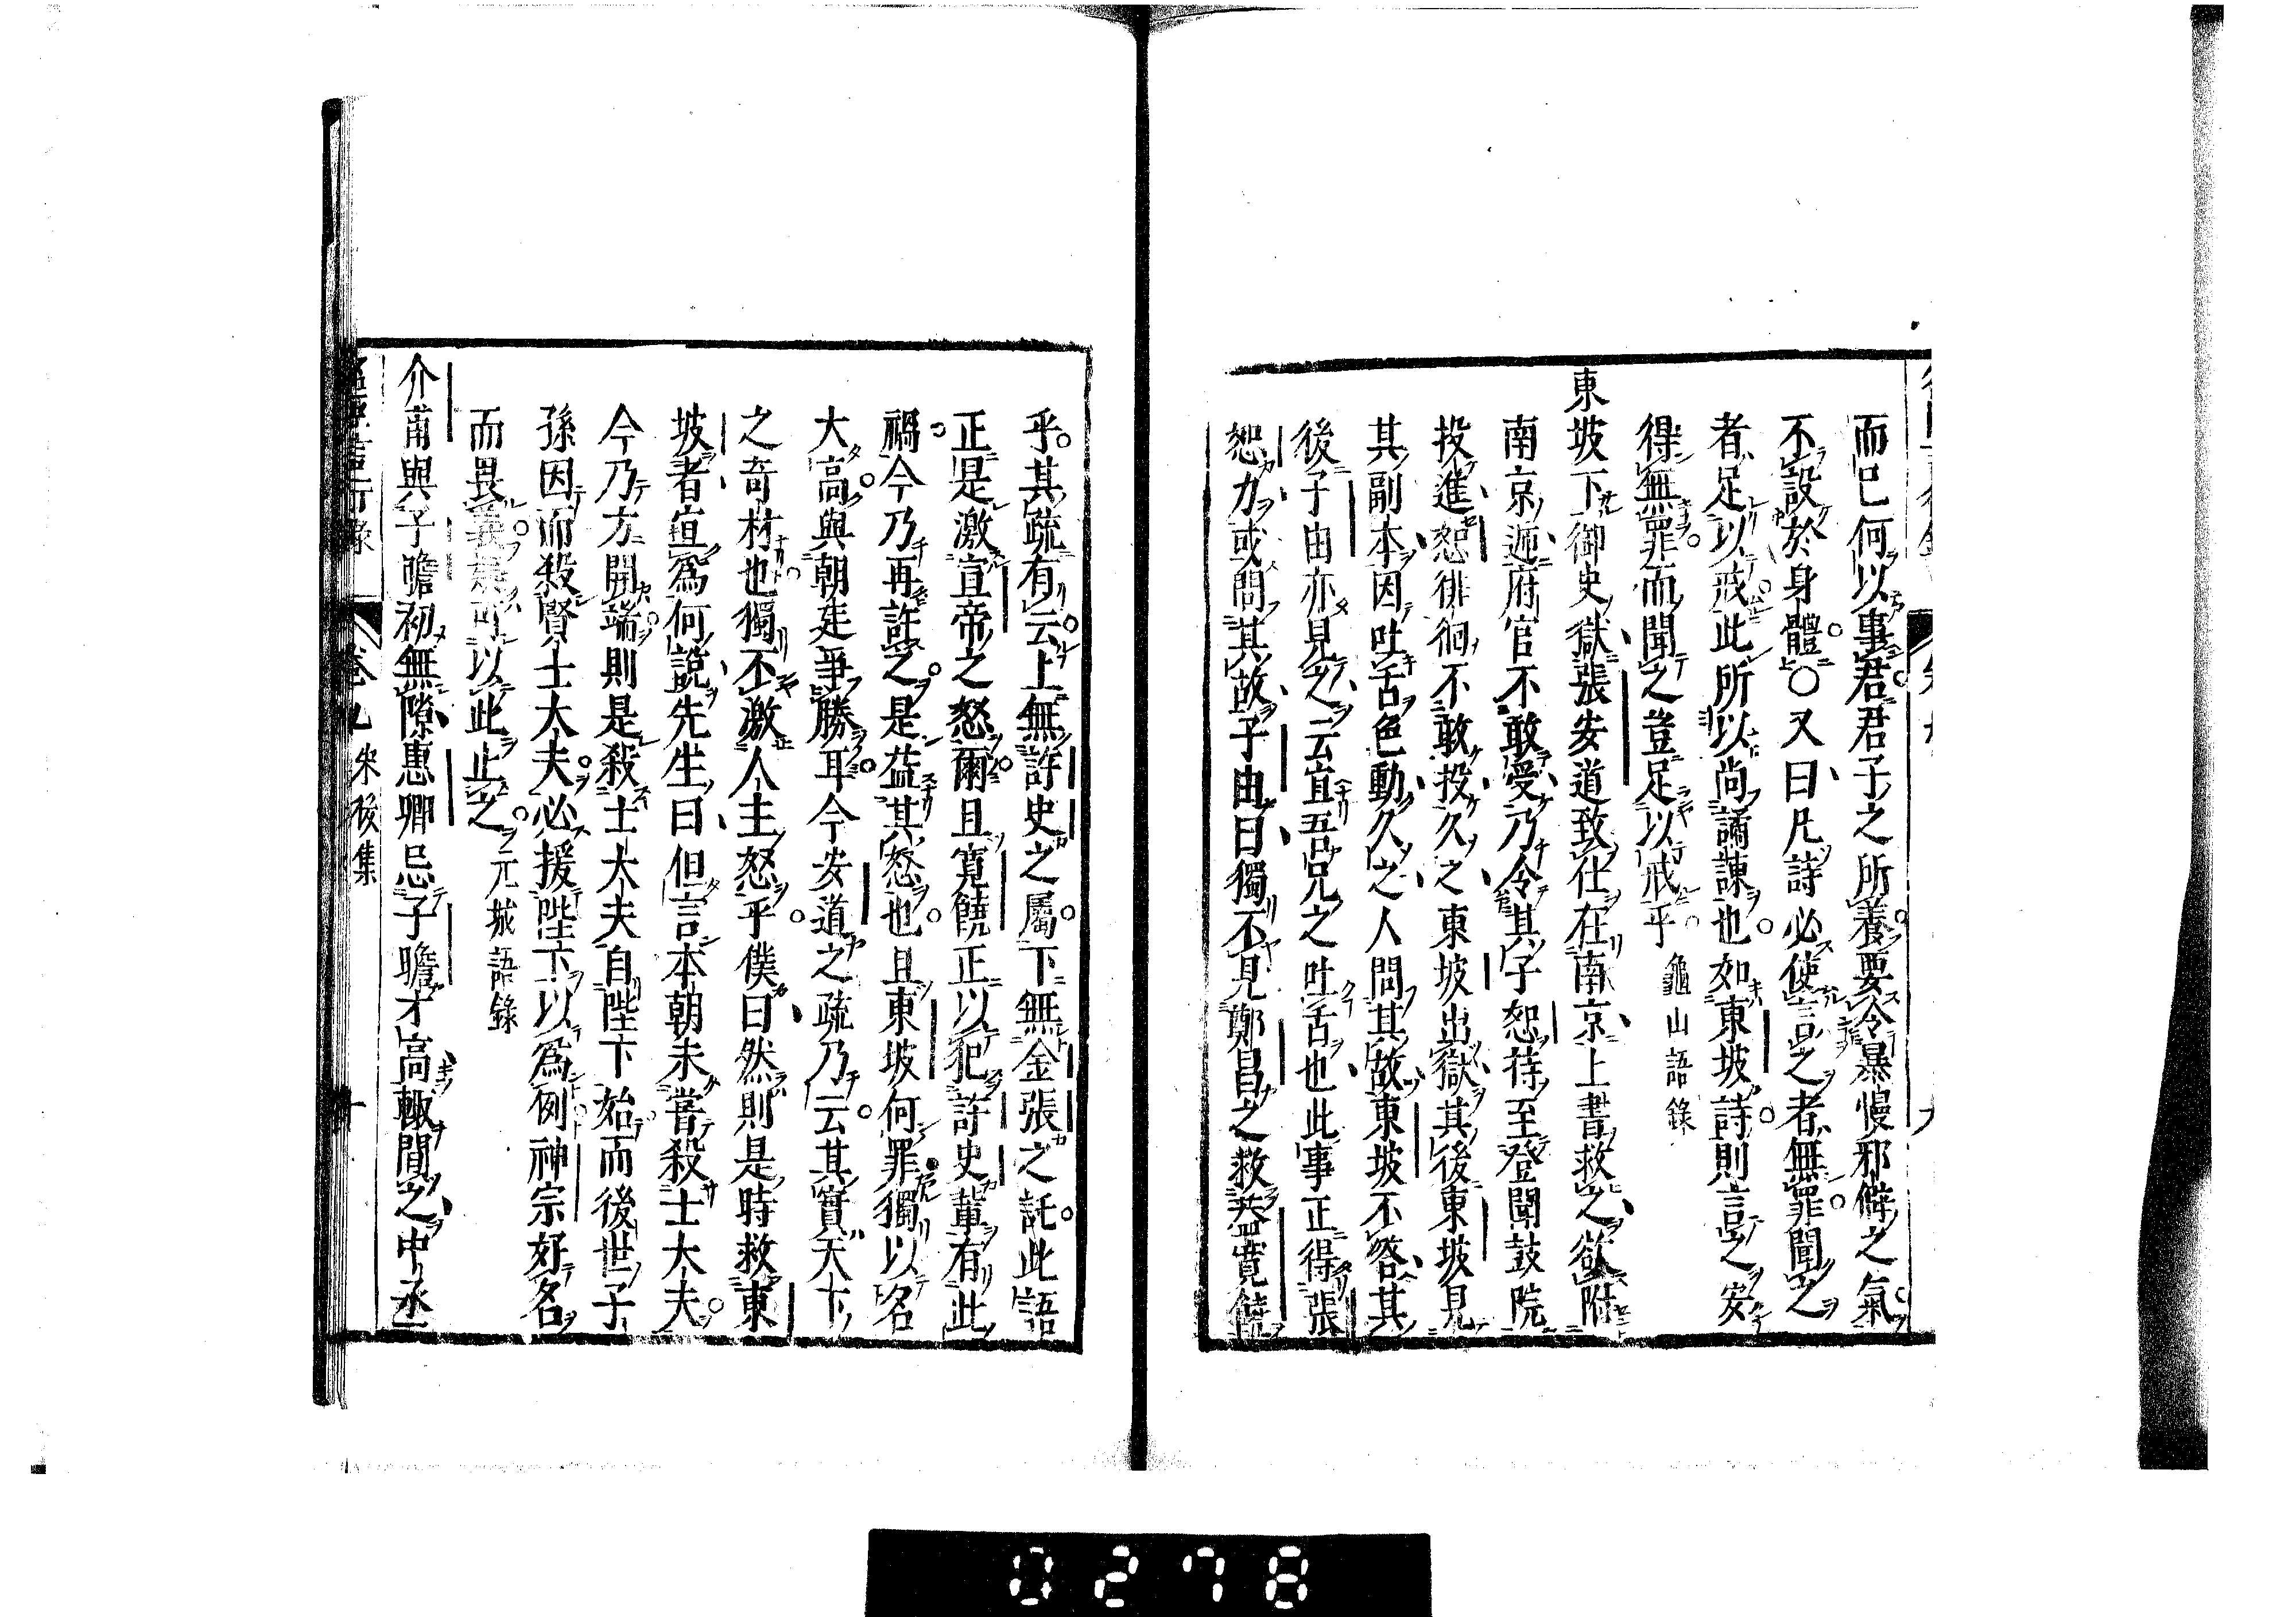 而已何以事君君子之所養要令暴慢邪僻之氣
不設於身體○又曰凡詩必使言之者無罪聞之
者足以戒此所以尚譎諫也如東坡詩則言之安
得無罪而聞之豈足以戒乎 龜山語錄
東坡下御史獄張安道致仕在南京上書救之欲附
南京遞府官不敢受乃令其子恕持至登聞鼓院
投進恕徘徊不敢投久之東坡出獄其後東坡見
其副本因吐舌色動久之人問其故東坡不答其
後子由亦見之云宜吾兄之吐舌也此事正得張
恕力或問其故子由曰獨不見鄭昌之救蓋寬饒
乎其疏有云上無許史之屬下無金張之託此語
正是激宣帝之怒爾且寬饒正以犯許史輩有此
禍今乃再訐之是益其怒也且東坡何罪獨以名
大高與朝廷爭勝耳今安道之疏乃云其實天下
之奇材也獨不激人主怒乎僕曰然則是時救東
坡者宜為何說先生曰但言本朝未嘗殺士大夫
今乃方開端則是殺士大夫自陛下始而後世子
孫因而殺賢士大夫必援陛下以為例神宗好名
而畏義可以此止之 元城語錄
介甫與子瞻初無隙惠卿忌子瞻才高輙間之中丞
卷九 宋後集 十
0278